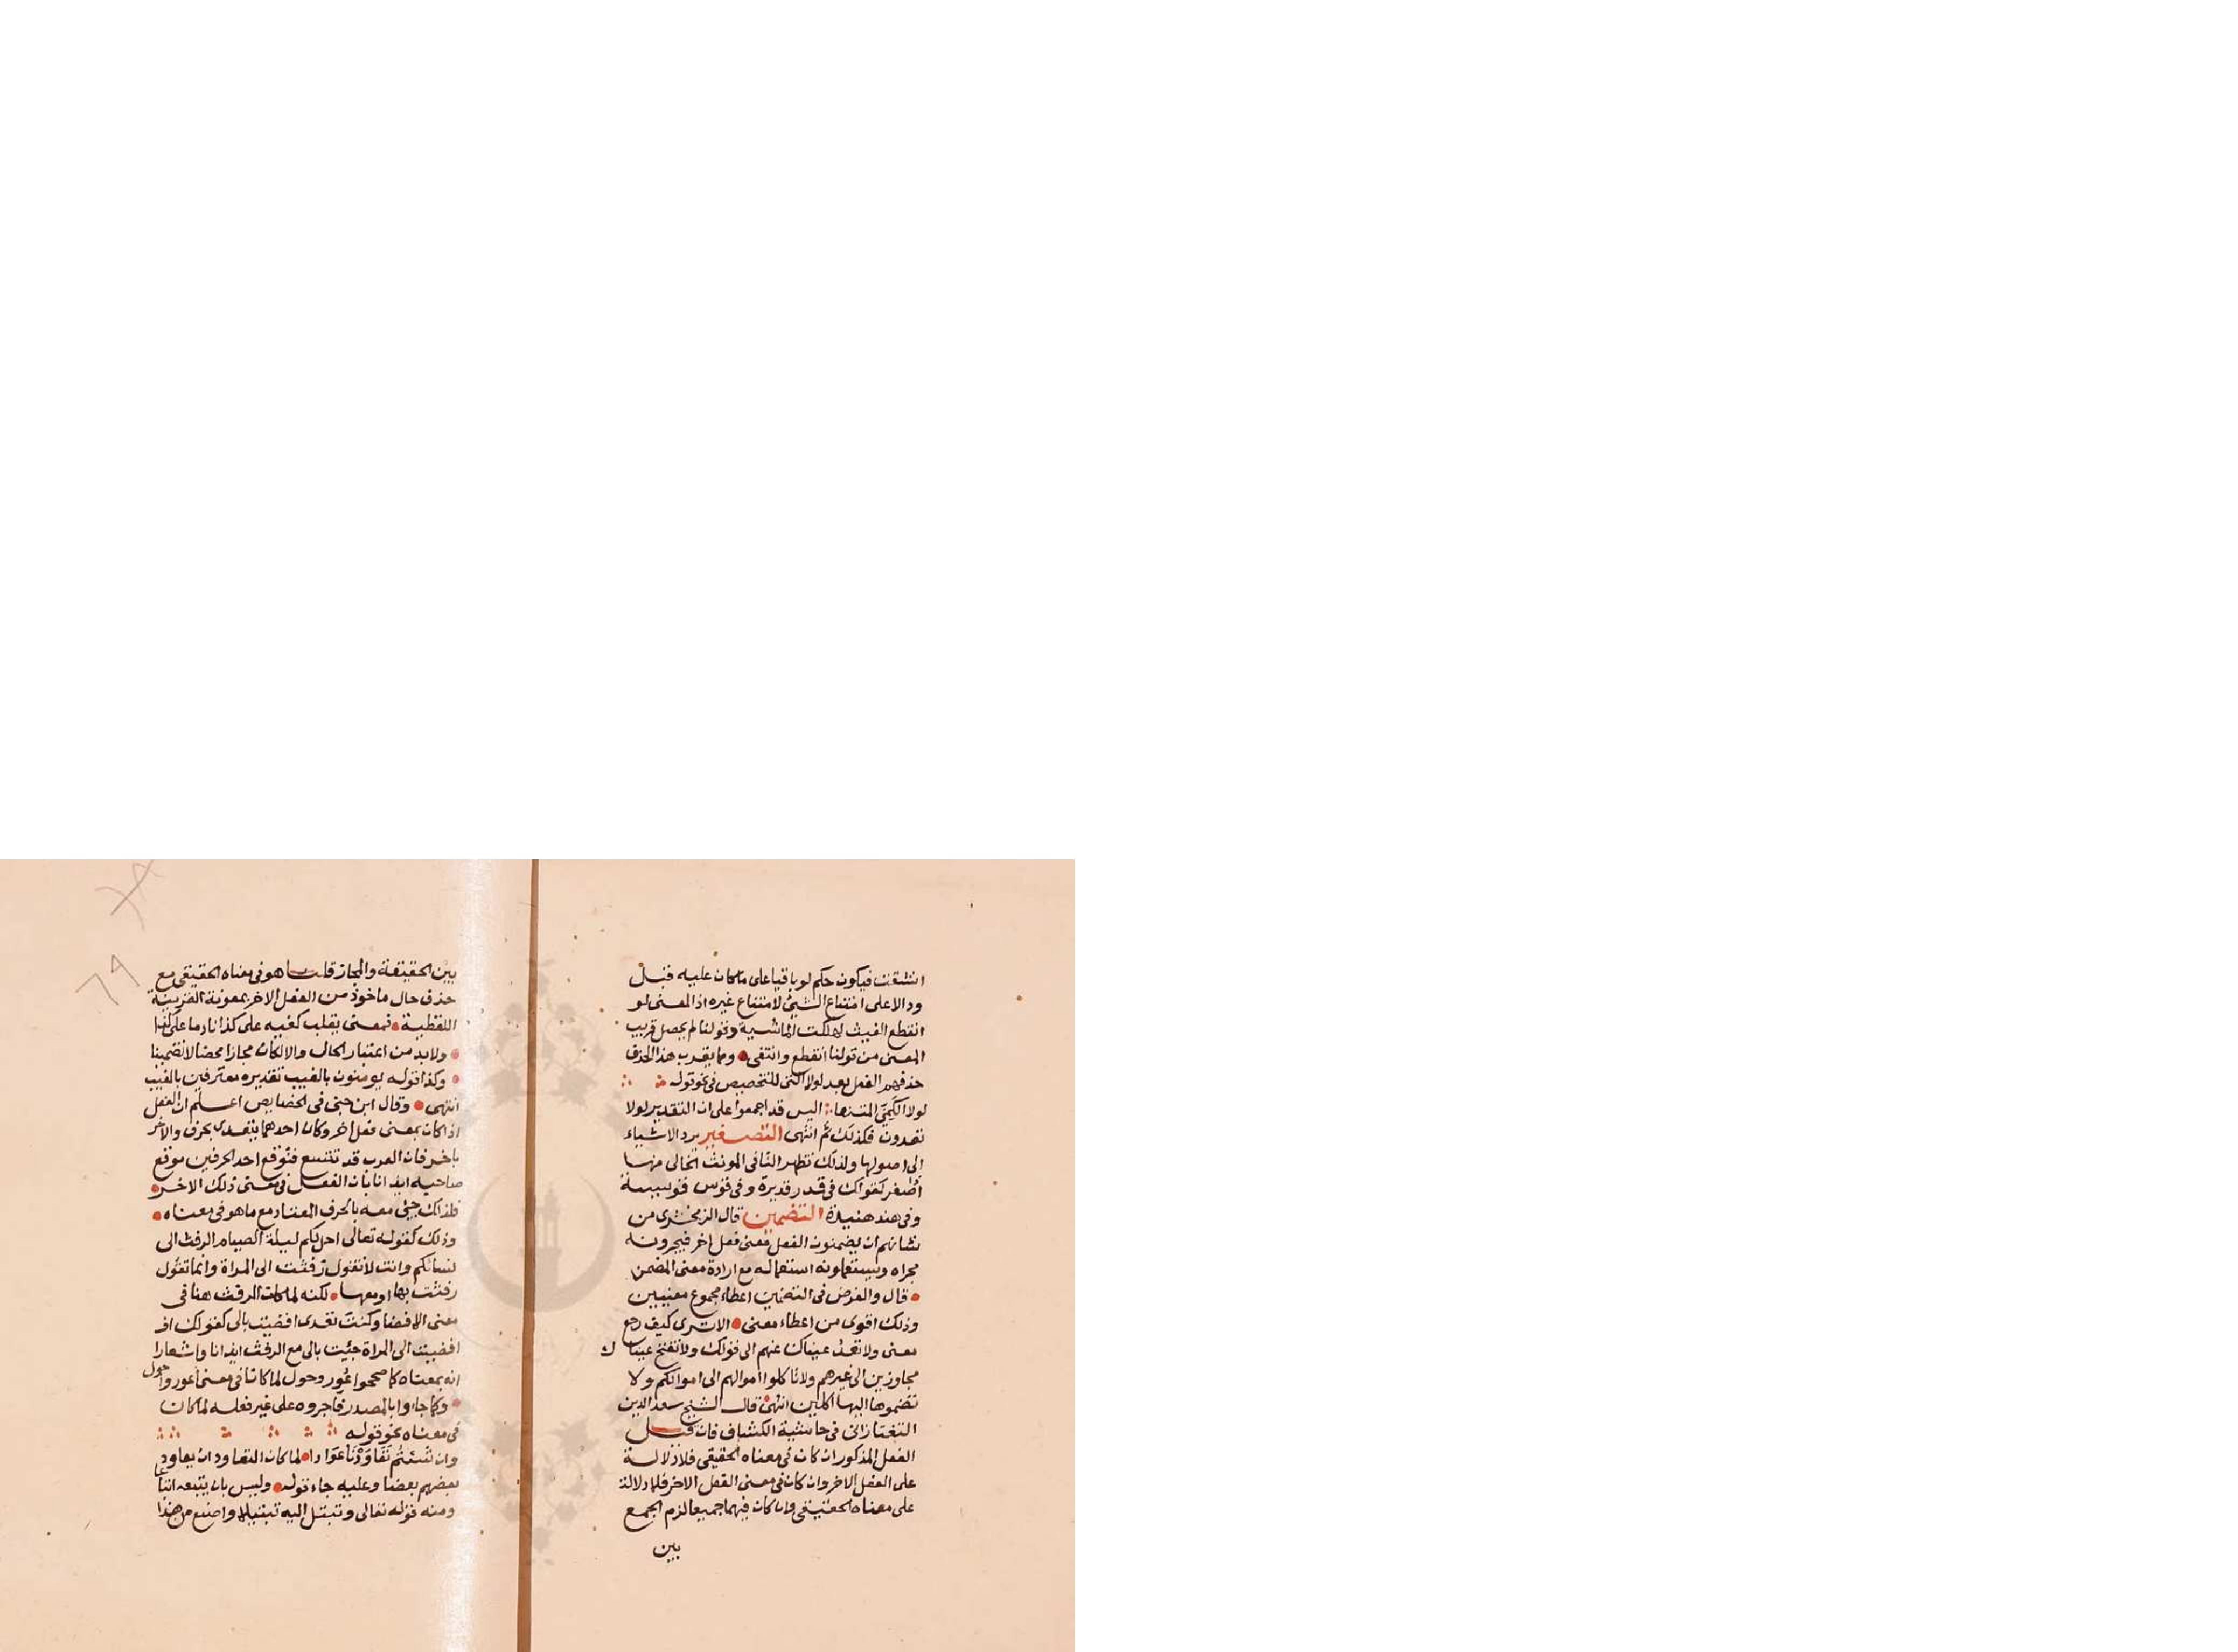 انشقت فيكون حكم لو باقيا على ما كان عليه قبل
ودالا على امتناع الشيئ لامتناع غيره اذ المعنى لو
انقطع الغيث لهلكت الماشية وقولنا لم يحصل قريب
المعنى من قولنا انقطع وانتفى ومما يقرب هذا الحذف
حذفهم الفعل بعد لولا التى للتحضيض فى نحو قوله
لولا الكمي المقنعا اليس قد اجمعوا على ان التقدير لولا
تعدون فكذلك ثم انتهى التصغير يرد الاشياء
الى اصولها ولذلك تظهر التا فى المونث الخالى منها
اذا صغر كقولك فى قدر قديرة وفى قوس قويسة
وفى هند هنيدة التضمين قال الزمخشرى من
شانهم ان يضمنون الفعل معنى فعل اخر فيجرونه
مجراه ويستعملونه استعماله مع ارادة معنى المضمن
قال والغرض فى التضمين اعطاء مجموع معنيين
وذلك اقوى من اعطاء معنى الا ترى كيف رجع
معنى ولا تعد عيناك عنهم الى قولك ولا تقتحم عيناك
مجاوزين الى غيرهم ولا تاكلوا اموالهم الى اموالكم ولا
تضموها اليها اكلين انتهى قال الشيخ سعد الدين
التفتازانى فى حاشية الكشاف فان قيل
الفعل المذكور ان كان فى معناه الحقيقى فلا دلالة
على الفعل الاخر وان كان فى معنى الفعل الاخر فلا دلالة
على معناه الحقيقى وان كان فيهما جميعا لزم الجمع
بين
بين الحقيقة والمجاز قلت هو فى معناه الحقيقى مع
حذف حال ماخوذ من الفعل الاخر بمعونة القرينة
اللفظية فمعنى يقلب كفيه على كذا نادما على كذا
ولا بد من اعتبار الحال والا لكان مجازا محضا لا تضمينا
وكذا قوله يومنون بالغيب تقديره معترفين بالغيب
انتهى وقال ابن جنى فى الخصايص اعلم ان الفعل
اذا كان بمعنى فعل اخر وكان احدهما يتعدى بحرف والاخر
باخر فان العرب قد تتسع فتوقع احد الحرفين موقع
صاحبه ايذانا بان الفعل فى معنى ذلك الاخر
فلذلك جيئ معه بالحرف المعتاد مع ما هو فى معناه
وذلك كقوله تعالى احل لكم ليلة الصيام الرفث الى
نسائكم وانت لا تقول رفثت الى المراة وانما تقول
رفثت بها او معها لكنه لما كان الرفث هنا فى
معنى الافضا وكنت تعدى افضيت بالى كقولك
افضيت الى المراة جئت بالى مع الرفث ايذانا واشعارا
انه بمعناه كما صححوا عور وحول لما كانا فى معنى اعور واحول
وكما جاوا بالمصدر فاجروه على غير فعله لما كان
فى معناه نحو قوله
وان شئتم تعاودنا عوادا لما كان التعاود ان يعاود
بعضهم بعضا وعليه جاء قوله وليس بان يتبعه اتباعا
ومنه قوله تعالى وتبتل اليه تبتيلا واصنع من هذا